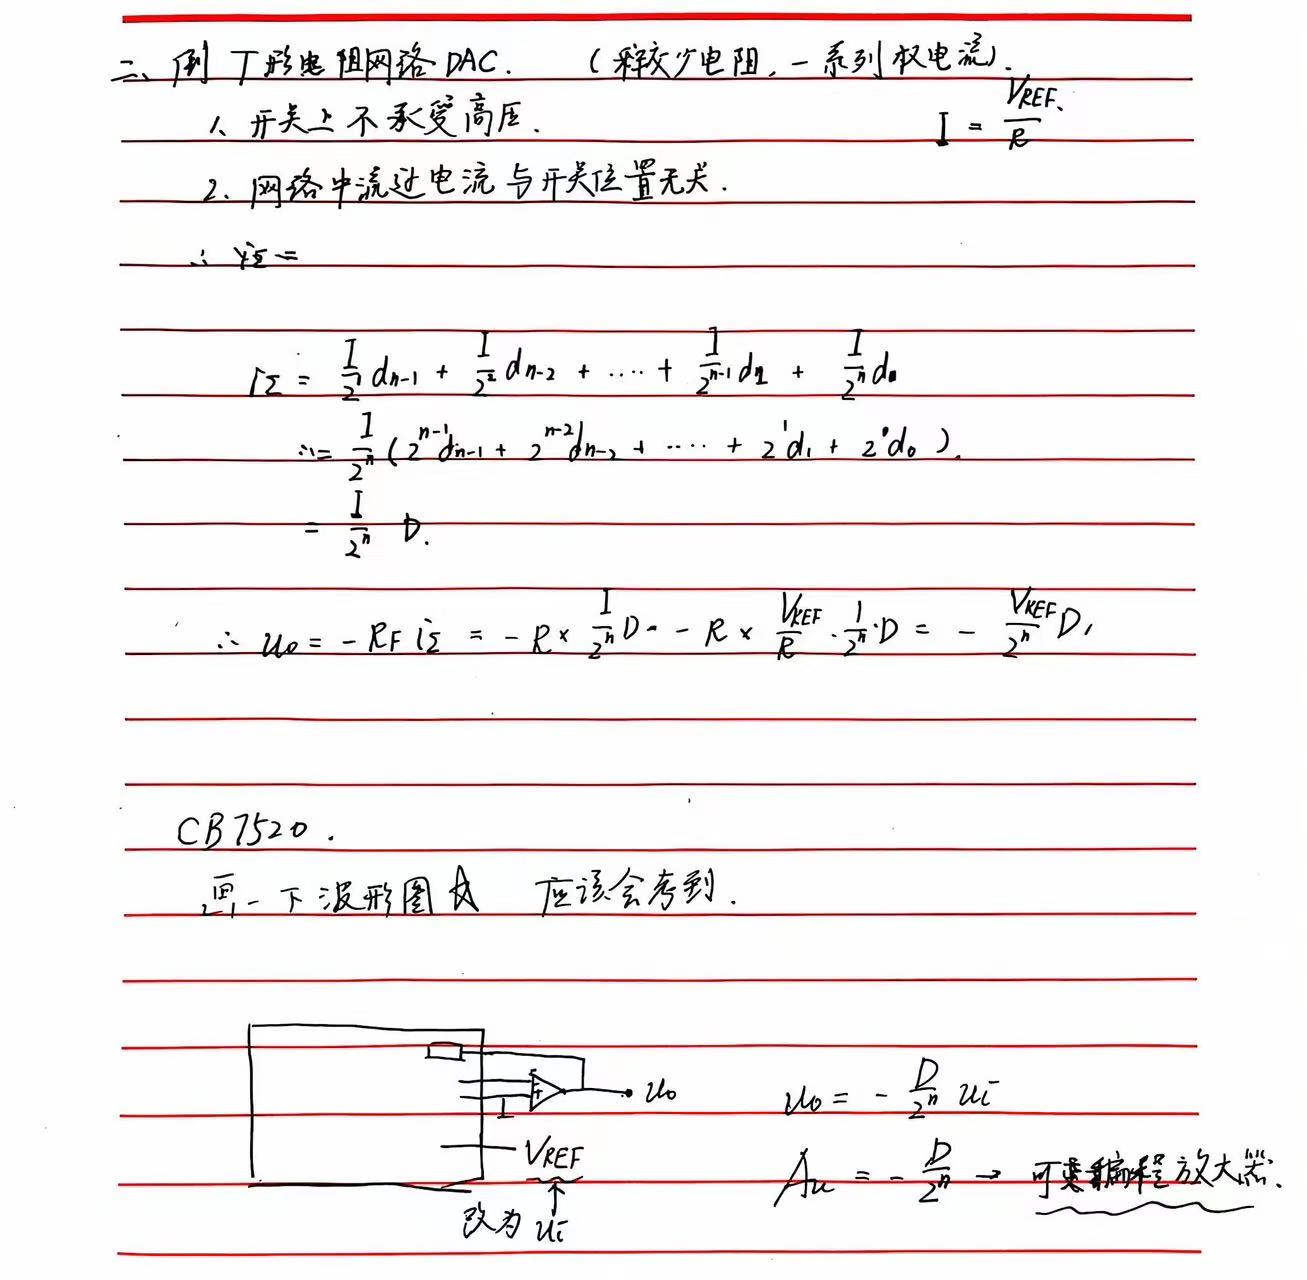 二、倒丁形电阻网络DAC. (释较少电阻,一系列权电流).
1、开关上不承受高压. I = V_REF / R
2、网络中流过电流与开关位置无关.
∴ i_Σ =
i_Σ = I/2^1 d_{n-1} + I/2^2 d_{n-2} + .... + I/2^{n-1} d_1 + I/2^n d_0
= I/2^n ( 2^{n-1} d_{n-1} + 2^{n-2} d_{n-2} + .... + 2^1 d_1 + 2^0 d_0 ).
= I/2^n D.
∴ u_o = - R_F i_Σ = - R × I/2^n D = - R × V_REF/R · 1/2^n · D = - V_REF/2^n D,
CB7520.
画一下波形图 ☆ 应该会考到.
u_o
u_o = - D/2^n u_i
V_REF
A_u = - D/2^n → 可编程放大器.
改为 u_i